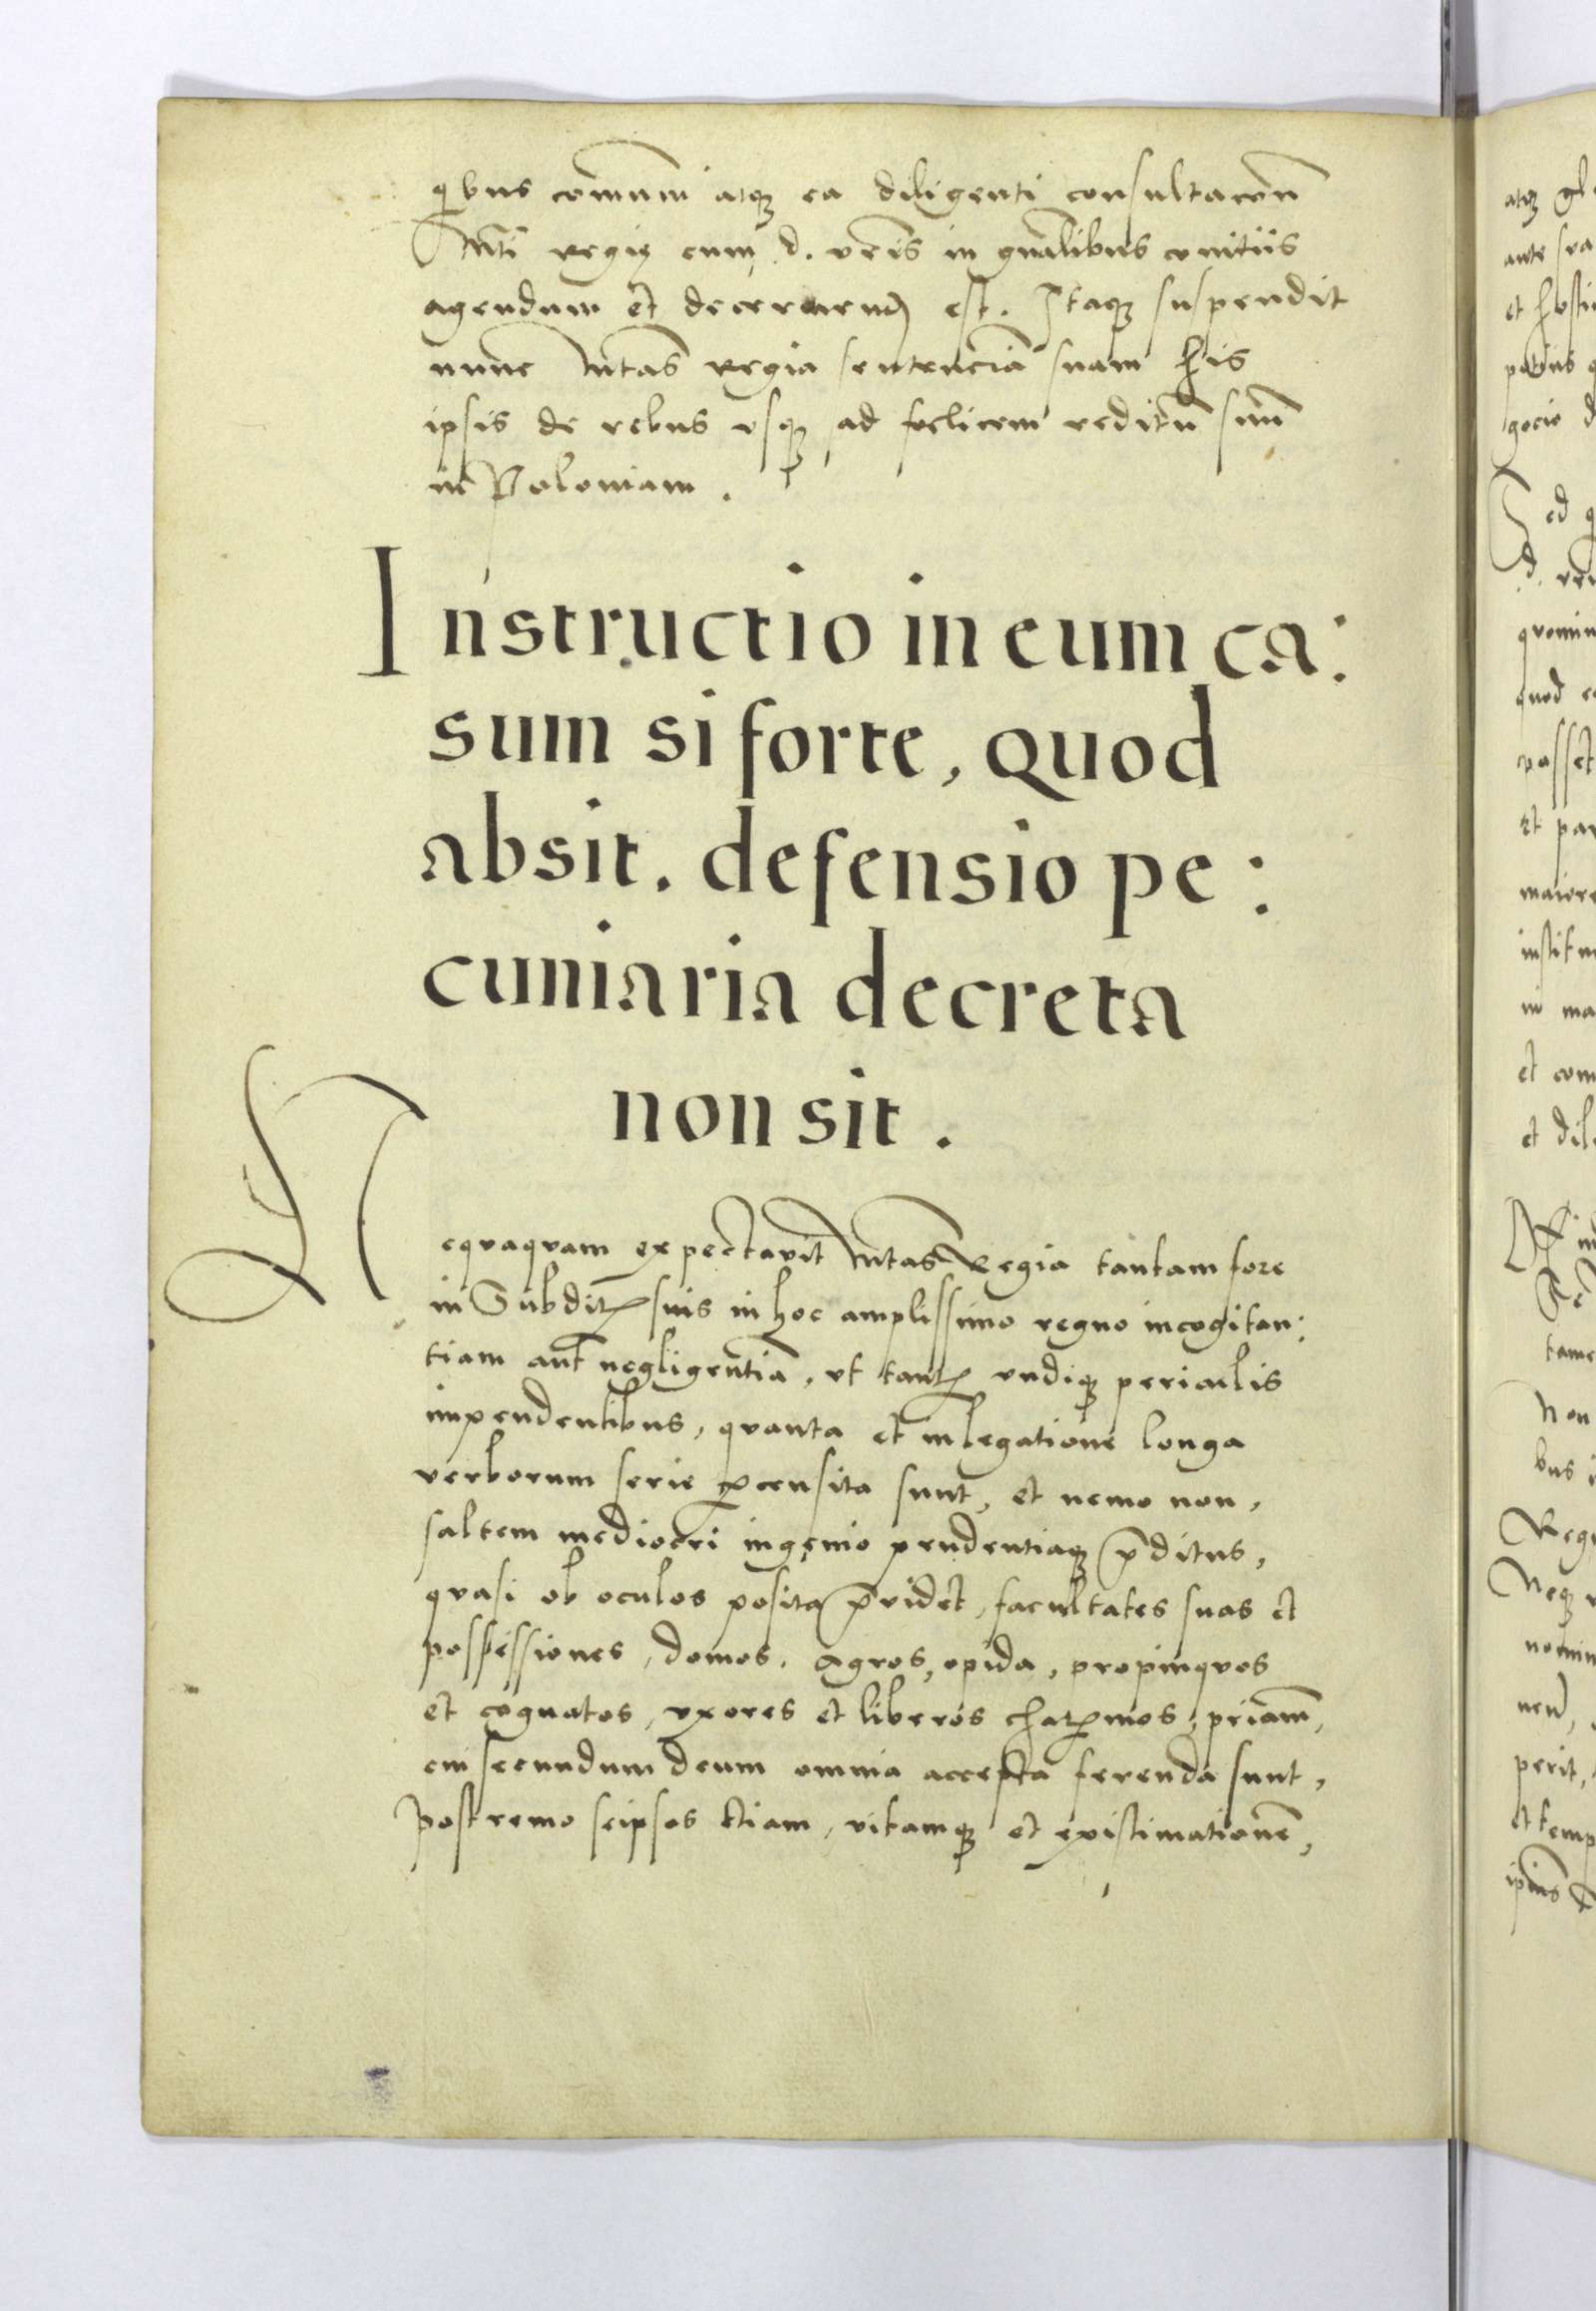 qbus comuni atq; ea diligenti consultacõn
Mti Regię cum d. vrĩs in gnalibus comitiis
agendum et decernend est. Itaq; suspendit
nunc Mtas Regia sentenciã suam his
ipsis de rebus vsq; ad foelicem reditũ suũ
in Poloniam.
Instructio in eum ca:
sum si forte, quod
absit. defensio pe:
cuniaria decreta
non sit.
Nequaquam expectavit Mtas Regia tantam fore
in Subdit; suis in hoc amplissimo regno incogitan:
tiam aut negligentiã, vt tant; vndiq; periculis
impendentibus, quanta et in legatione longa
verborum serie ꝑcensita sunt, et nemo non,
saltem mediocri ingenio prudentiaq; p̃ditus,
quasi ob oculos posita p̃videt, facultates suas et
possessiones, domos, agros, opida, propinquos
et cognatos, vxores et liberos charmos, priam,
cui secundum deum omnia accepta ferenda sunt,
postremo seipsos etiam, vitamq; et existimationẽ,
atq;
ante
et
ed
d.
quod
et
in ma
et com
et dil
Non
bus
Neq;
perit,